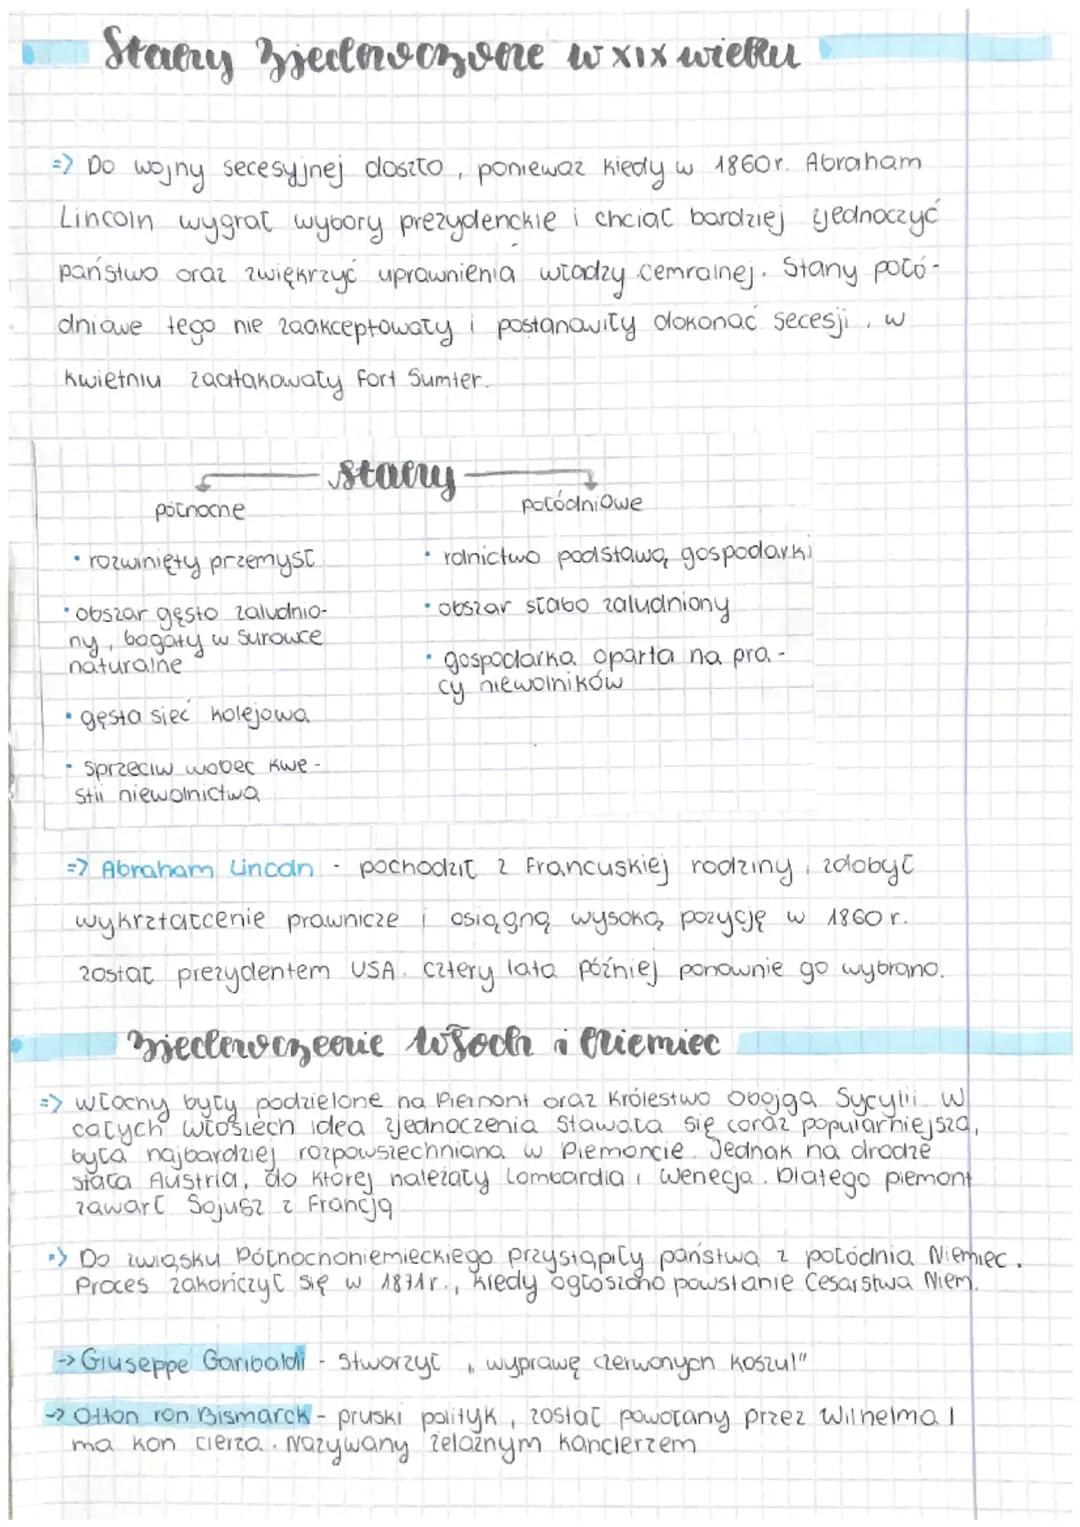 Stany Zjednoczone w XIX wieku
=> Do wojny secesyjnej doszło, ponieważ kiedy w 1860r. Abraham
Lincoln wygrał wybory prezydenckie i chciał bardziej zjednoczyć
państwo oraz zwiękrzyć uprawnienia władzy cemralnej. Stany połó-
dniowe tego nie zaakceptowały i postanowiły dokonać secesji, w
kwietniu zaatakowały Fort Sumter.
stany
północne
połódniowe
• rozwinięty przemysł
• rolnictwo podstawą gospodarki
• obszar gęsto zaludnio-
ny, bogaty w surowce
naturalne
• obszar słabo zaludniony
• gospodarka oparta na pra-
cy niewolników
• gęsta sieć kolejowa
• sprzeciw wobec kwe-
stii niewolnictwa
=> Abraham Lincoln - pochodził z francuskiej rodziny, zdobył
wykrztałcenie prawnicze i osiągną wysoką pozycję w 1860r.
został prezydentem USA. Cztery lata później ponownie go wybrano.
Zjednoczenie Włoch i Niemiec
=> Włochy były podzielone na Piemont oraz Królestwo Obojga Sycylii. W
całych Włosiech idea zjednoczenia stawała się coraz popularniejsza,
była najbardziej rozpowsiechniana w Piemoncie. Jednak na drodze
stała Austria, do której należały Lombardia i Wenecja. Dlatego piemont
zawarł Sojusz z Francją
=> Do związku Północnoniemieckiego przystąpiły państwa z połódnia Niemiec.
Proces zakończył się w 1871r., kiedy ogłoszono powstanie Cesarstwa Niem.
-> Giuseppe Garibaldi - stworzył „wyprawę czerwonych koszul"
-> Otton von Bismarck - pruski polityk, został powołany przez Wilhelma I
ma kon clerza. Nazywany żelaznym kanclerzem